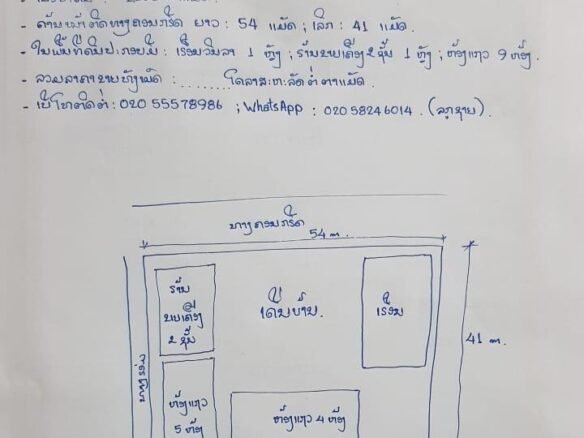 - ດ້ານໜ້າຕິດທາງຄອນກຣີດ ຍາວ : 54 ແມັດ ; ເລິກ : 41 ແມັດ.
- ໃນພື້ນທີ່ດິນປະກອບມີ : ເຮືອນວິນລາ 1 ຫຼັງ ; ຮ້ານຂາຍເຄື່ອງ 2 ຊັ້ນ 1 ຫຼັງ ; ຫ້ອງແຖວ 9 ຫ້ອງ.
- ລວມລາຄາຂາຍທັງໝົດ : ........ ໂດລາສະຫະລັດຕໍ່ຕາແມັດ.
- ເບີໂທຕິດຕໍ່ : 020 55578986 ; WhatsApp : 020 58246014 . (ລຸງຊາຍ).
ທາງຄອນກຣີດ
54 m.
ຮ້ານ
ຂາຍເຄື່ອງ
2 ຊັ້ນ
ເດີ່ນບ້ານ.
ເຮືອນ
41 m.
ຫ້ອງແຖວ
5 ຫ້ອງ
ຫ້ອງແຖວ 4 ຫ້ອງ